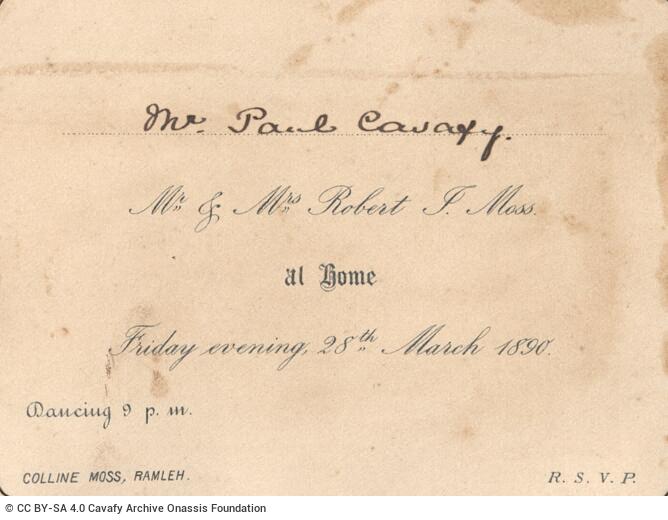 Mr. Paul Cavafy.
Mr & Mrs Robert J. Moss.
at Home
Friday evening, 28th March 1890.
Dancing 9 p. m.
COLLINE MOSS, RAMLEH.
R. S. V. P.
© CC BY-SA 4.0 Cavafy Archive Onassis Foundation